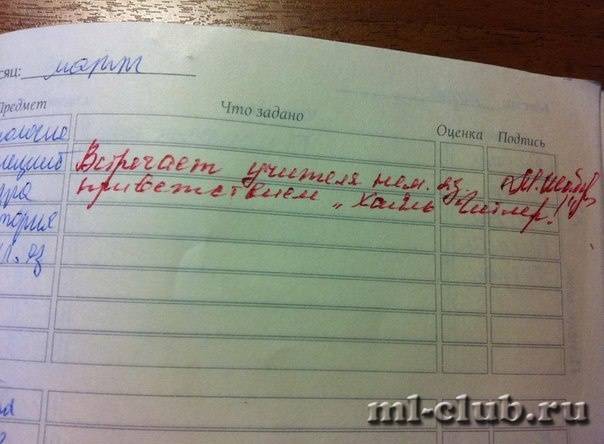 сяц: март
Предмет Что задано Оценка Подпись
Встречает учителя нем. яз.
приветствием „Хайль Гитлер!"
тория
яз
ml-club.ru